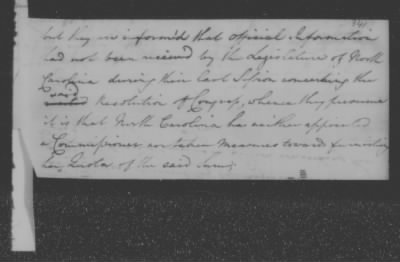 but they are informed that official Information
had not been received by the Legislature of North
Carolina during their last Session concerning the
said
Resolution of Congress, whence they presume
it is that North Carolina has neither appointed
a Commissioner nor taken Measures toward furnishing
her Quota of the said Sum;